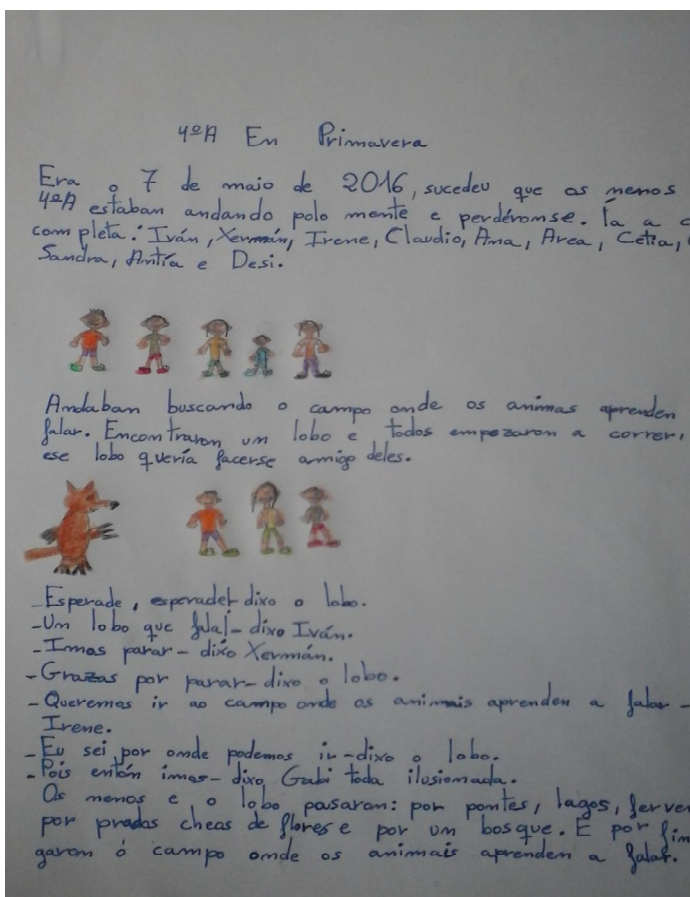 4ºA En Primavera
Era o 7 de maio de 2016, sucedeu que os menos
4ºA estaban andando polo monte e perdéronse. Ía a c
completa: Iván, Xermán, Irene, Claudio, Ana, Area, Cetia,
Sandra, Antía e Desi.
Andaban buscando o campo onde os animas aprenden
falar. Encontraron um lobo e todos empezaron a correr,
ese lobo quería facerse amigo deles.
-Esperade, esperade!-dixo o lobo.
-Um lobo que fala!-dixo Iván.
-Imos parar-dixo Xermán.
-Grazas por parar-dixo o lobo.
-Queremos ir ao campo onde os animais aprenden a falar-
Irene.
-Eu sei por onde podemos ir-dixo o lobo.
-Pois entón imos-dixo Gabi toda ilusionada.
Os menos e o lobo pasaron: por pontes, lagos, ferven
por prados cheos de flores e por um bosque. E por fim
garon ó campo onde os animais aprenden a falar.